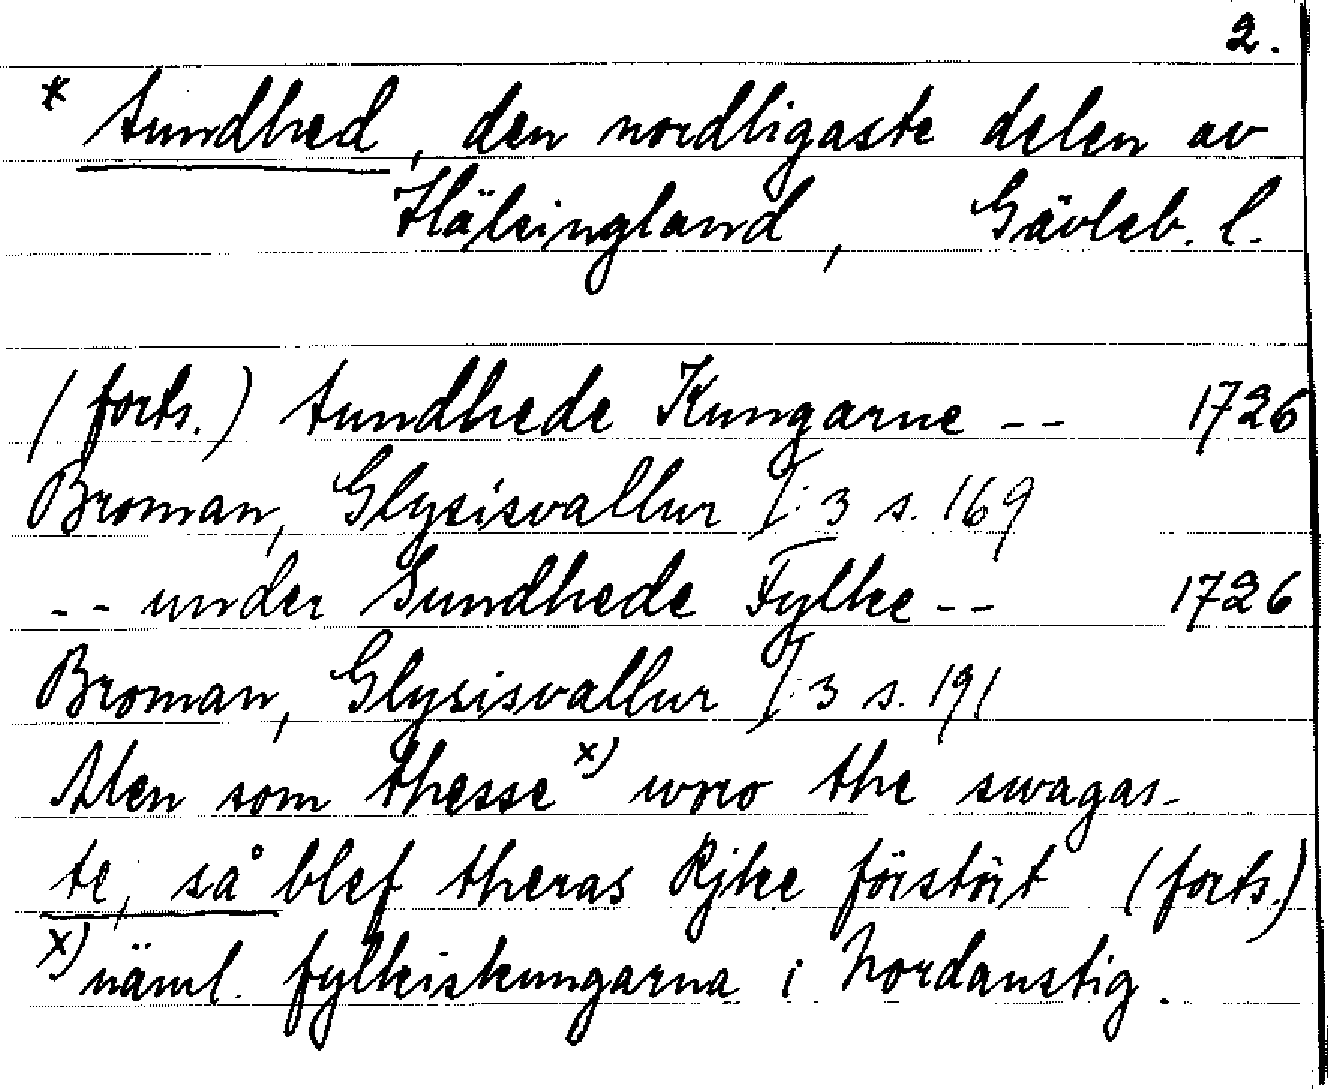 2.
* Sundhed, den nordligaste delen av
Hälsingland, Gävleb. l.
(forts.) Sundhede Kungarne -- 1726
Broman, Glysisvallur I:3 s. 169
-- under Sundhede Fylke -- 1726
Broman, Glysisvallur I:3 s. 191
Men som thesse x) woro the swagas-
te, så blef theras Rjke förstört (forts.)
x) näml. fylkiskungarna i Nordanstig.